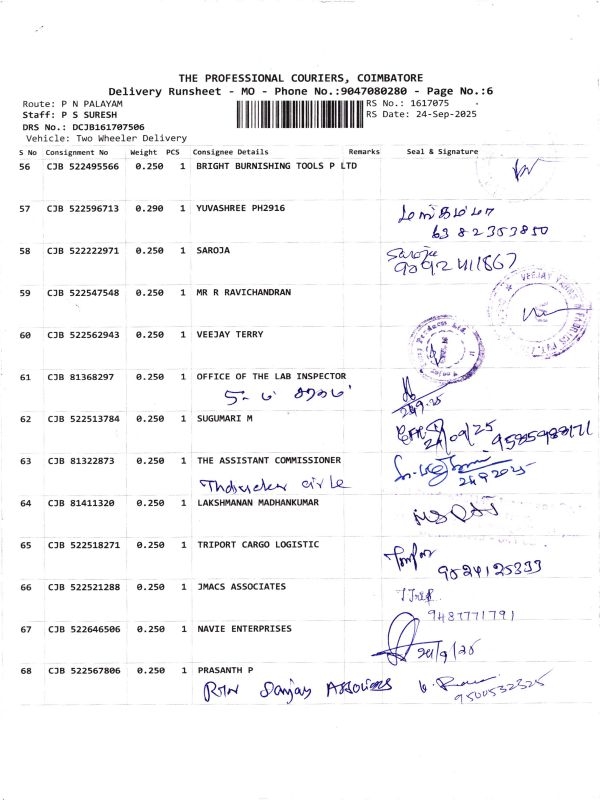 THE PROFESSIONAL COURIERS, COIMBATORE
Delivery Runsheet - MO - Phone No.:9047080280 - Page No.:6
Route: P N PALAYAM RS No.: 1617075
Staff: P S SURESH RS Date: 24-Sep-2025
DRS No.: DCJB161707506
Vehicle: Two Wheeler Delivery
S No Consignment No Weight PCS Consignee Details Remarks Seal & Signature
56 CJB 522495566 0.250 1 BRIGHT BURNISHING TOOLS P LTD
57 CJB 522596713 0.290 1 YUVASHREE PH2916
6382353850
58 CJB 522222971 0.250 1 SAROJA Saroja
9092411867
59 CJB 522547548 0.250 1 MR R RAVICHANDRAN
60 CJB 522562943 0.250 1 VEEJAY TERRY
61 CJB 81368297 0.250 1 OFFICE OF THE LAB INSPECTOR
24.9.25
62 CJB 522513784 0.250 1 SUGUMARI M
24/09/25
63 CJB 81322873 0.250 1 THE ASSISTANT COMMISSIONER
24 9 2025
64 CJB 81411320 0.250 1 LAKSHMANAN MADHANKUMAR
65 CJB 522518271 0.250 1 TRIPORT CARGO LOGISTIC
9524125333
66 CJB 522521288 0.250 1 JMACS ASSOCIATES
9487771791
67 CJB 522646506 0.250 1 NAVIE ENTERPRISES
24/9/25
68 CJB 522567806 0.250 1 PRASANTH P
Sanjay Associates
9500532325